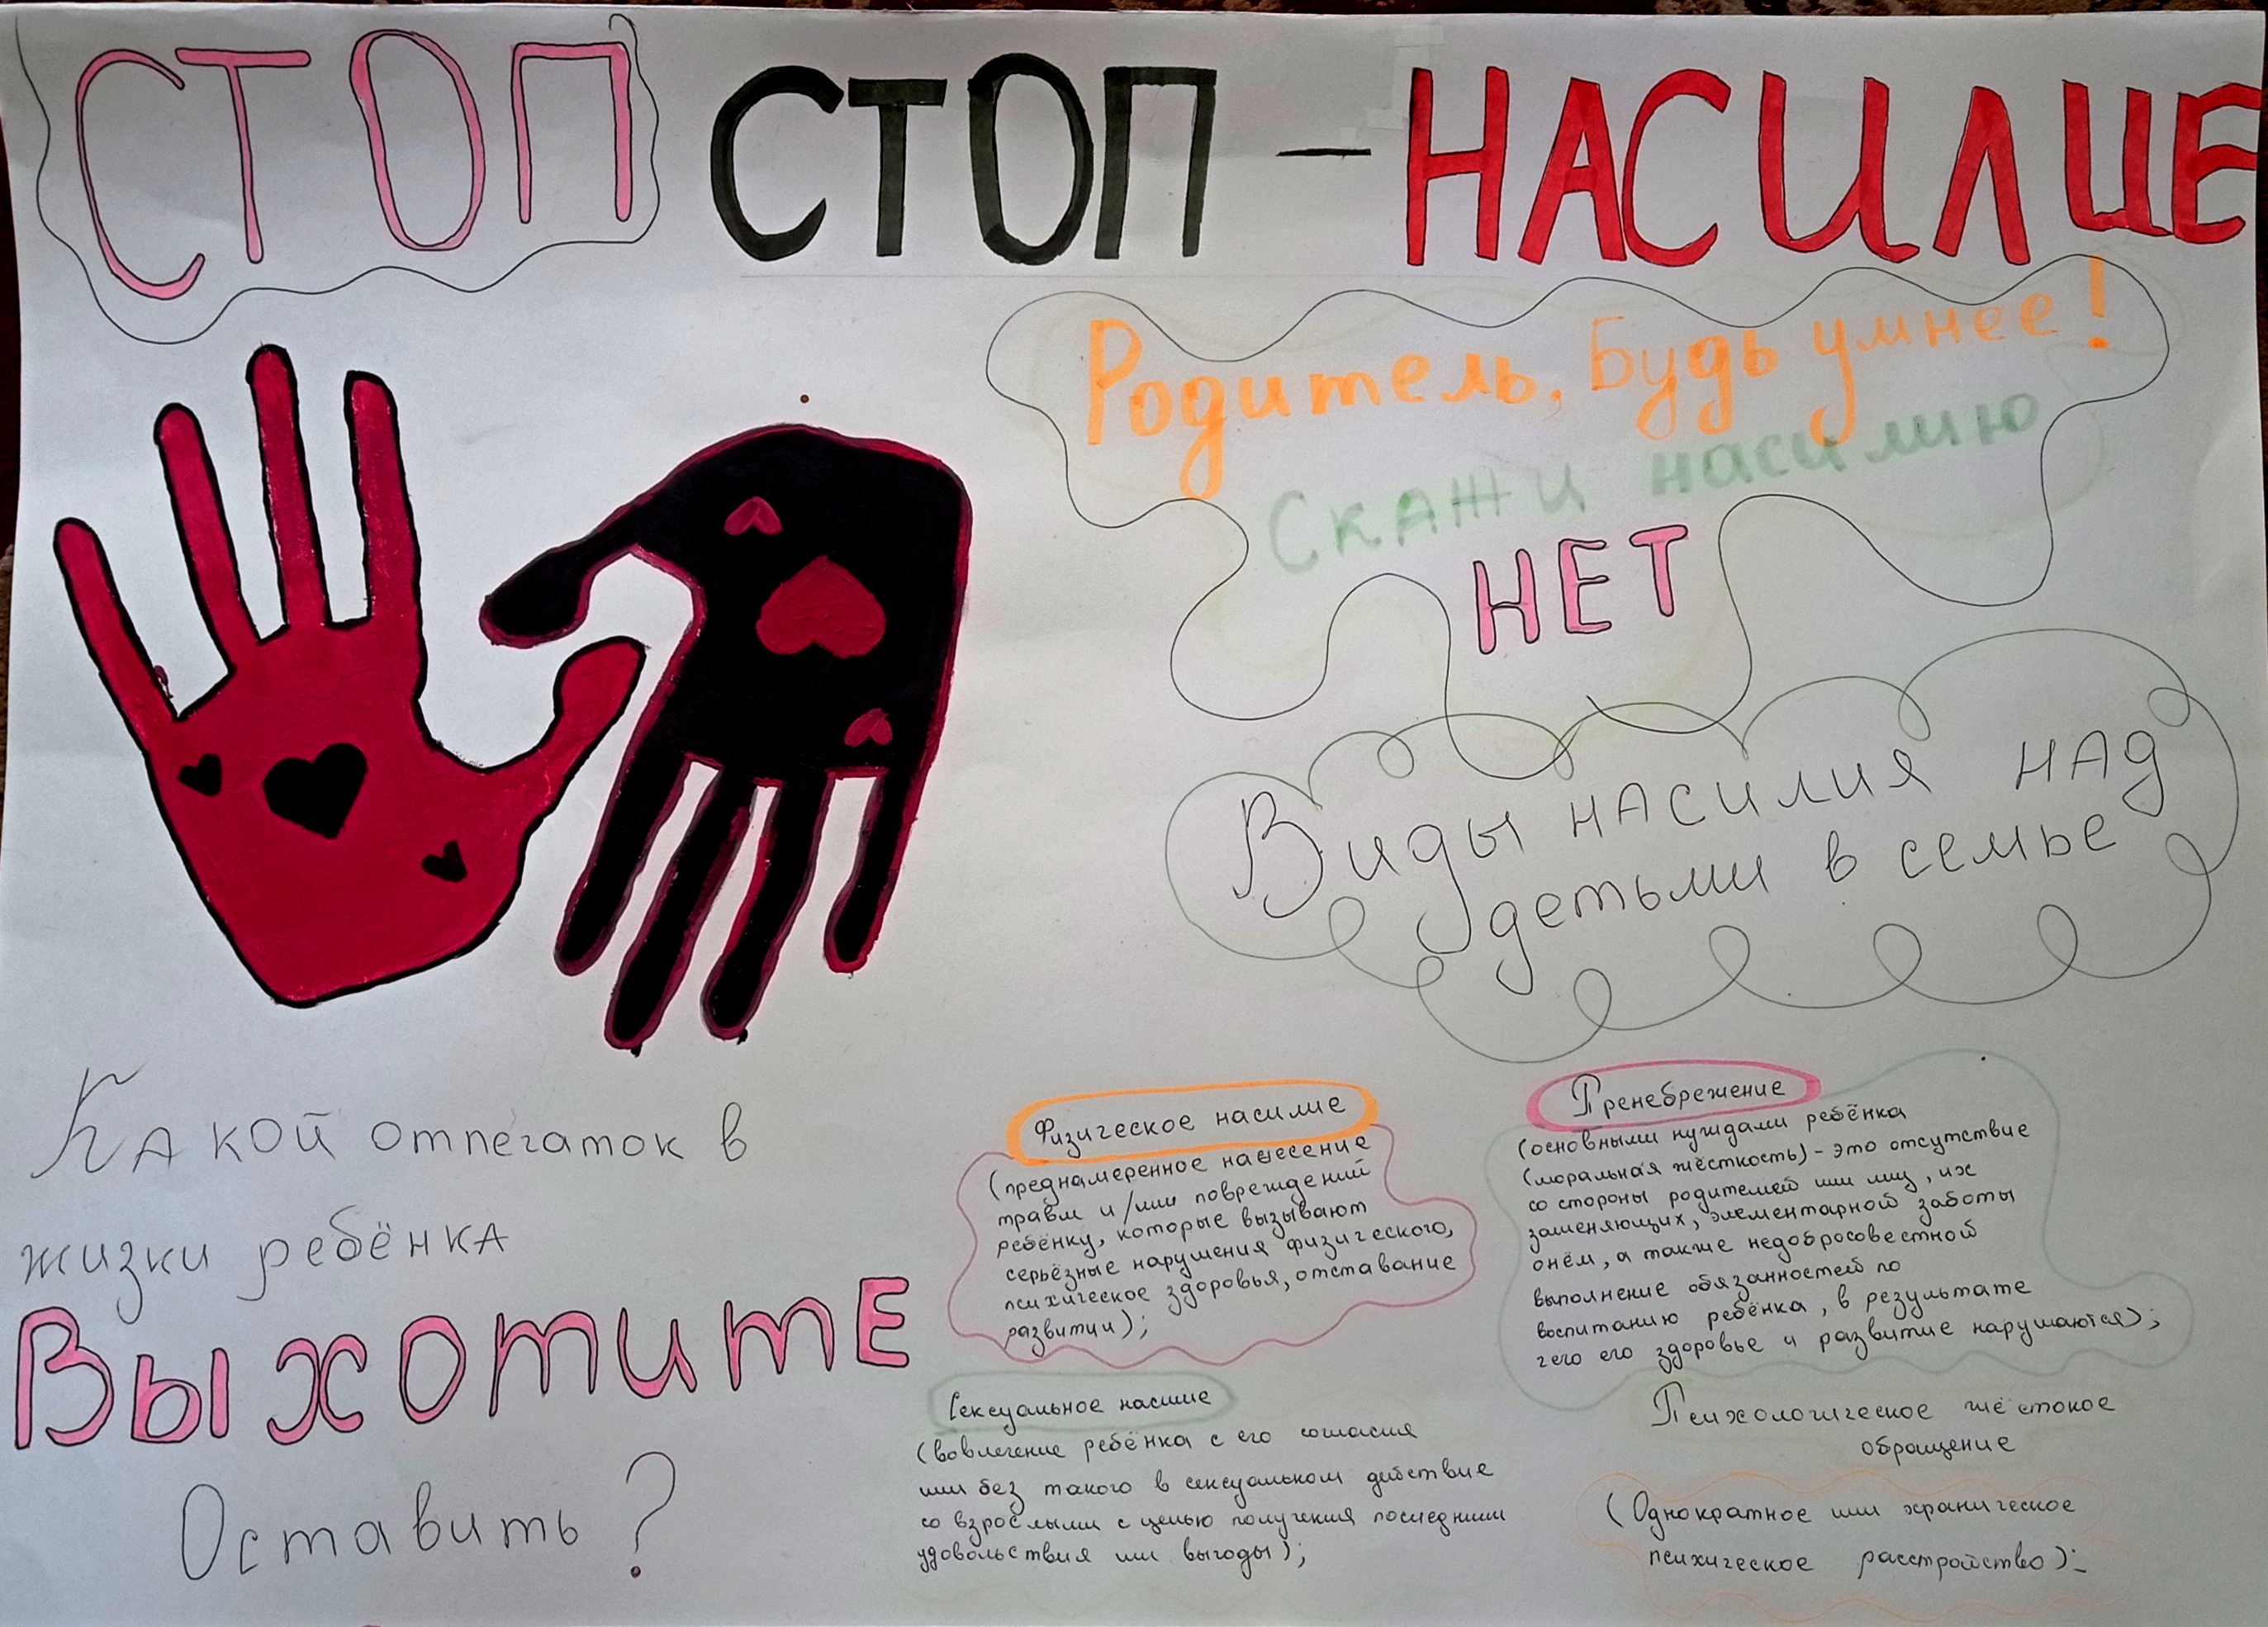 СТОП СТОП – НАСИЛИЕ
Родитель, Будь умнее!
Скажи насилию
НЕТ
Виды насилия над
детьми в семье
Какой отпечаток в
жизки ребёнка
Вы хотите
Оставить?
Физическое насилие
(преднамеренное нанесение
травм и/или повреждений
ребёнку, которые вызывают
серьёзные нарушения физического,
психическое здоровья, отставание
развитии);
Пренебрежение
(основными нуждами ребёнка
(моральная жёсткость) - это отсутствие
со стороны родителей или лиц, их
заменяющих, элементарной заботы
онём, а также недобросовестной
выполнение обязанностей по
воспитанию ребёнка, в результате
чего его здоровье и развитие нарушаются);
Сексуальное насилие
(вовлечение ребёнка с его согласия
или без такого в сексуальном действие
со взрослыми с целью получения последними
удовольствия или выгоды);
Психологическое жёстокое
обращение
(Однократное или храническое
психическое расстройство):